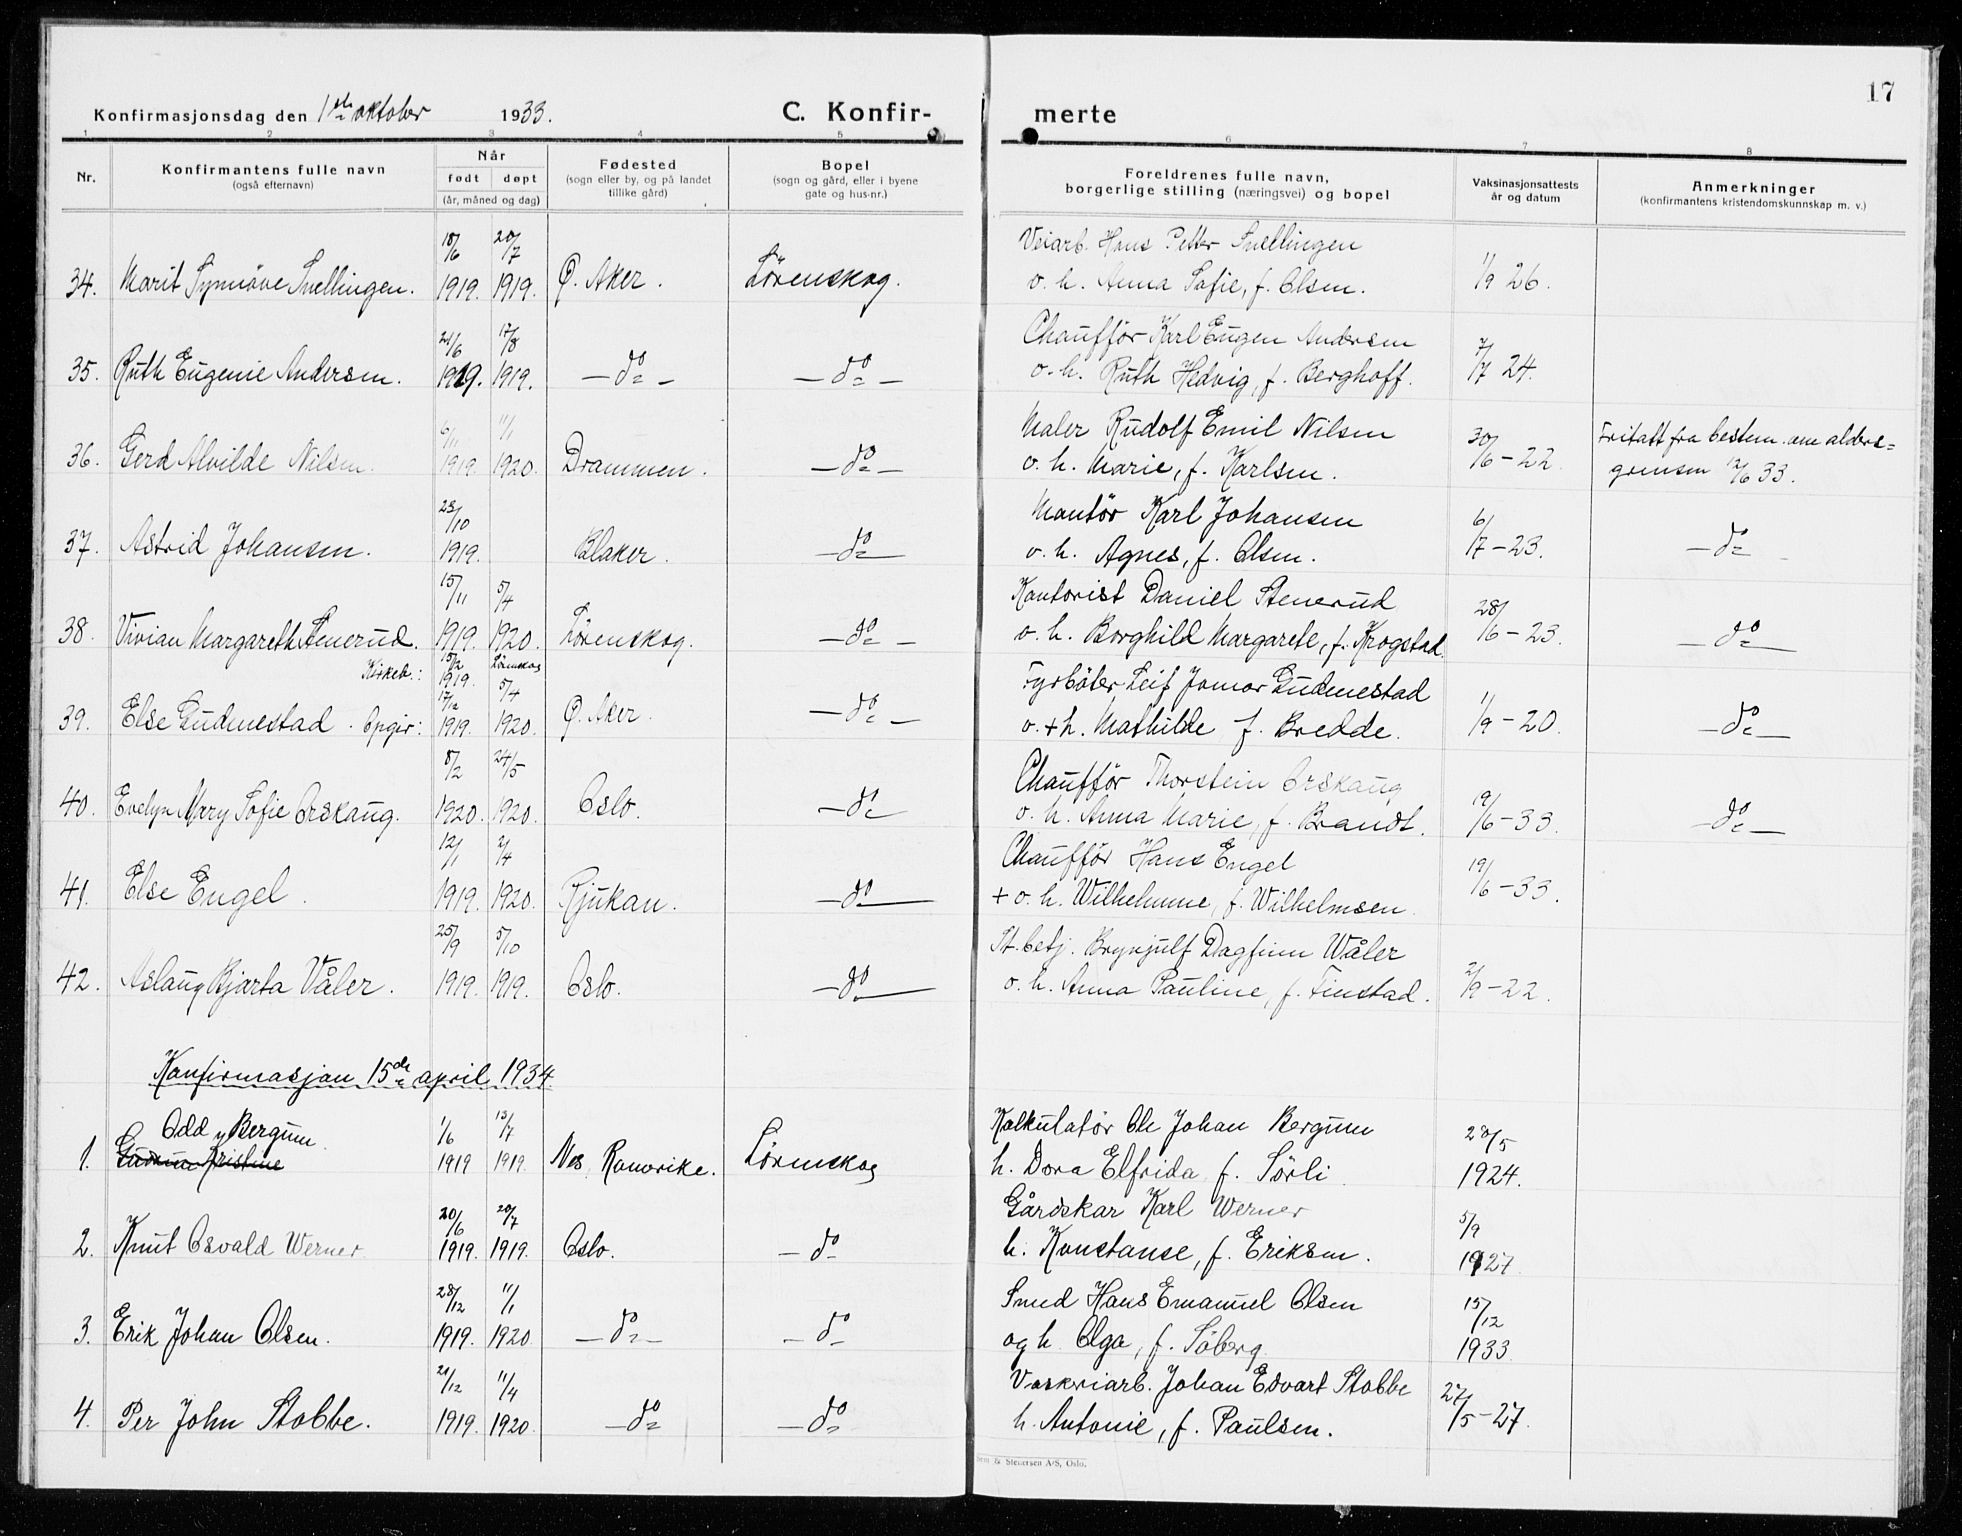 17
Konfirmasjonsdag den 1ste oktober 1933. C. Konfir-merte
1 2 3 4 5 6 7 8
Nr. Konfirmantens fulle navn (også efternavn) Når født døpt (år, måned og dag) Fødested (sogn eller by, og på landet tillike gård) Bopel (sogn og gård, eller i byene gate og hus-nr.) Foreldrenes fulle navn, borgerlige stilling (næringsvei) og bopel Vaksinasjonsattests år og datum Anmerkninger (konfirmantens kristendomskunnskap m. v.)
18/6 20/7 Veiarb. Hans Petter Snellingen
34. Marit Synnöve Snellingen. 1919. 1919. Ø. Aker. Lörenskog. o. h. Anna Sofie, f. Olsen. 1/9 26.
21/6 17/8 Chaufför Karl Eugen Andersen
35. Ruth Eugenie Andersen. 1919. 1919. — do — — do — o. h. Ruth Hedvig, f. Berghoff. 7/7 24.
6/11 11/1 Maler Rudolf Emil Nilsen 30/6 – 22 Fritatt fra bestem. om alders=
36. Gerd Alvilde Nilsen. 1919. 1920. Drammen. — do — o. h. Marie, f. Karlsen. grensen 12/6 33.
23/10 Montör Karl Johansen
37. Astrid Johansen. 1919. Blaker. — do — o. h. Agnes, f. Olsen. 6/7 – 23. — do —
15/11 5/4 Kontorist Daniel Stenerud
38. Vivian Margareth Stenerud. 1919. 1920. Lörenskog. — do — o. h. Borghild Margarete, f. Krogstad. 28/6 – 23. — do —
Kirkeb.: 15/2 1919. Lörenskog
17/12 5/4 Fyrböter Leif Jomar Gudmestad
39. Else Gudmestad. Opgir: 1919. 1920. Ø. Aker. — do — o. + h. Mathilde f. Bredde. 1/9 – 20. — do —
8/2 24/5 Chaufför Thorstein Orskaug
40. Evelyn Mary Sofie Orskaug. 1920. 1920. Oslo. — do — o. h. Anna Marie, f. Brandt. 19/6 – 33. — do —
12/1 2/4 Chaufför Hans Engel
41. Else Engel. 1919. 1920. Rjukan. — do — + o. h. Wilhelmine, f. Wilhelmsen. 19/6 – 33.
25/9 5/10 St. betj. Brynjulf Dagfinn Wåler
42. Aslaug Bjarta Våler. 1919. 1919. Oslo. — do — o. h. Anna Pauline, f. Finstad. 2/9 – 22.
Konfirmasjon 15de april 1934
Odd Bergum 1/6 13/7 Kalkulatör Ole Johan Bergum 20/5
1. Gudrun Kristine 1919 1919. Nes, Romerike. Lörenskog h. Dora Elfrida f. Sörli 1924.
20/6 20/7 Gårdskar Karl Werner 5/9
2. Knut Osvald Werner 1919. 1919. Oslo. — do — h. Konstanse, f. Eriksen. 1927.
28/12 11/1 Smed Hans Emanuel Olsen 15/12
3. Erik Johan Olsen. 1919. 1920 — do — — do — og h. Olga, f. Söberg. 1933.
21/12 11/4 Vaskeriarb. Johan Edvart Stobbe
4. Per John Stobbe. 1919. 1920. — do — — do — h. Antonie, f. Paulsen. 27/5 – 27.
& Stenersen A/S, Oslo.